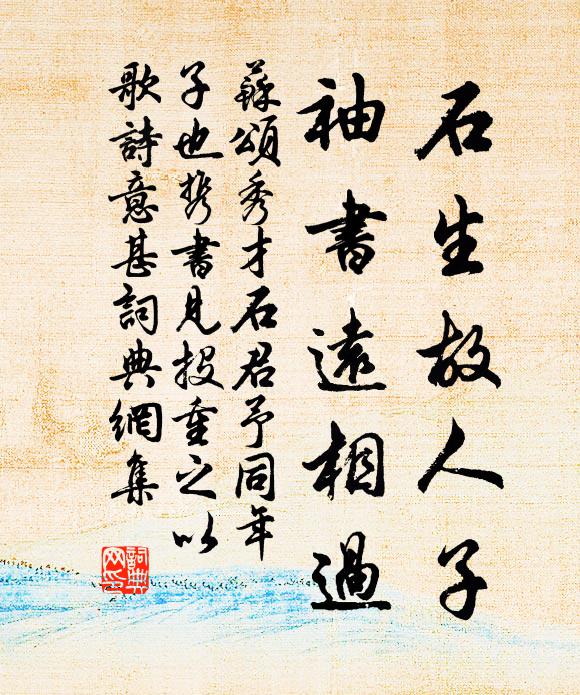 石生故人子
袖書遠相過
蘇頌秀才石君予同年
子也携書見投重之以
歌詩意甚詞典網集
詞典网印